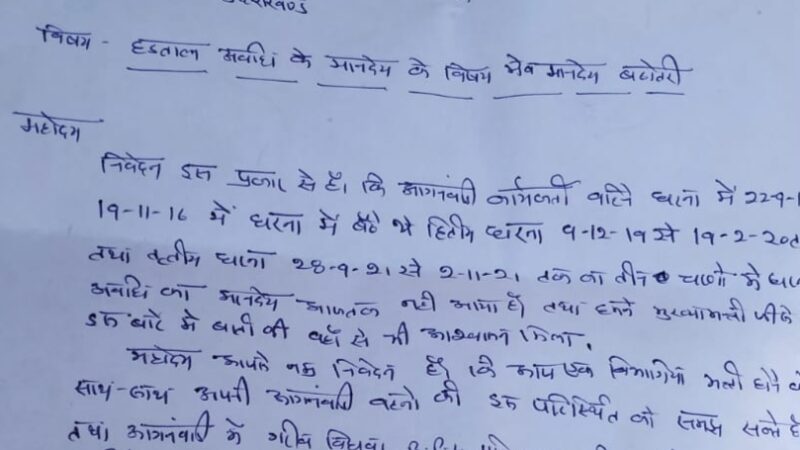 विषय - हडताल अवधि के मानदेय के विषय मेव मानदेय बढोतरी
महोदय
निवेदन इस प्रकार से है। कि आगनवाडी कार्यकर्ती धरना में 22-9-1
19-11-16 में धरना में बैठे थे द्वितीय धरना 9-12-19 से 19-2-20
तथा तृतीय धरना 28-9-21 से 2-11-21 तक का तीन चरणो में
अवधि का मानदेय आजतक नही आया है। तथा हमने मुख्यमन्त्री जी के
इस बारे मे वार्ता की वहाँ से भी आश्वासन मिला।
महोदय आपसे नम्र निवेदन है। कि आप एक विभागिय मन्त्री होने
साथ-साथ अपनी आगनवाडी बहनो की इस परिस्थिति को समझ सकते है
तथा आगनवाडी में गरीब विधवा